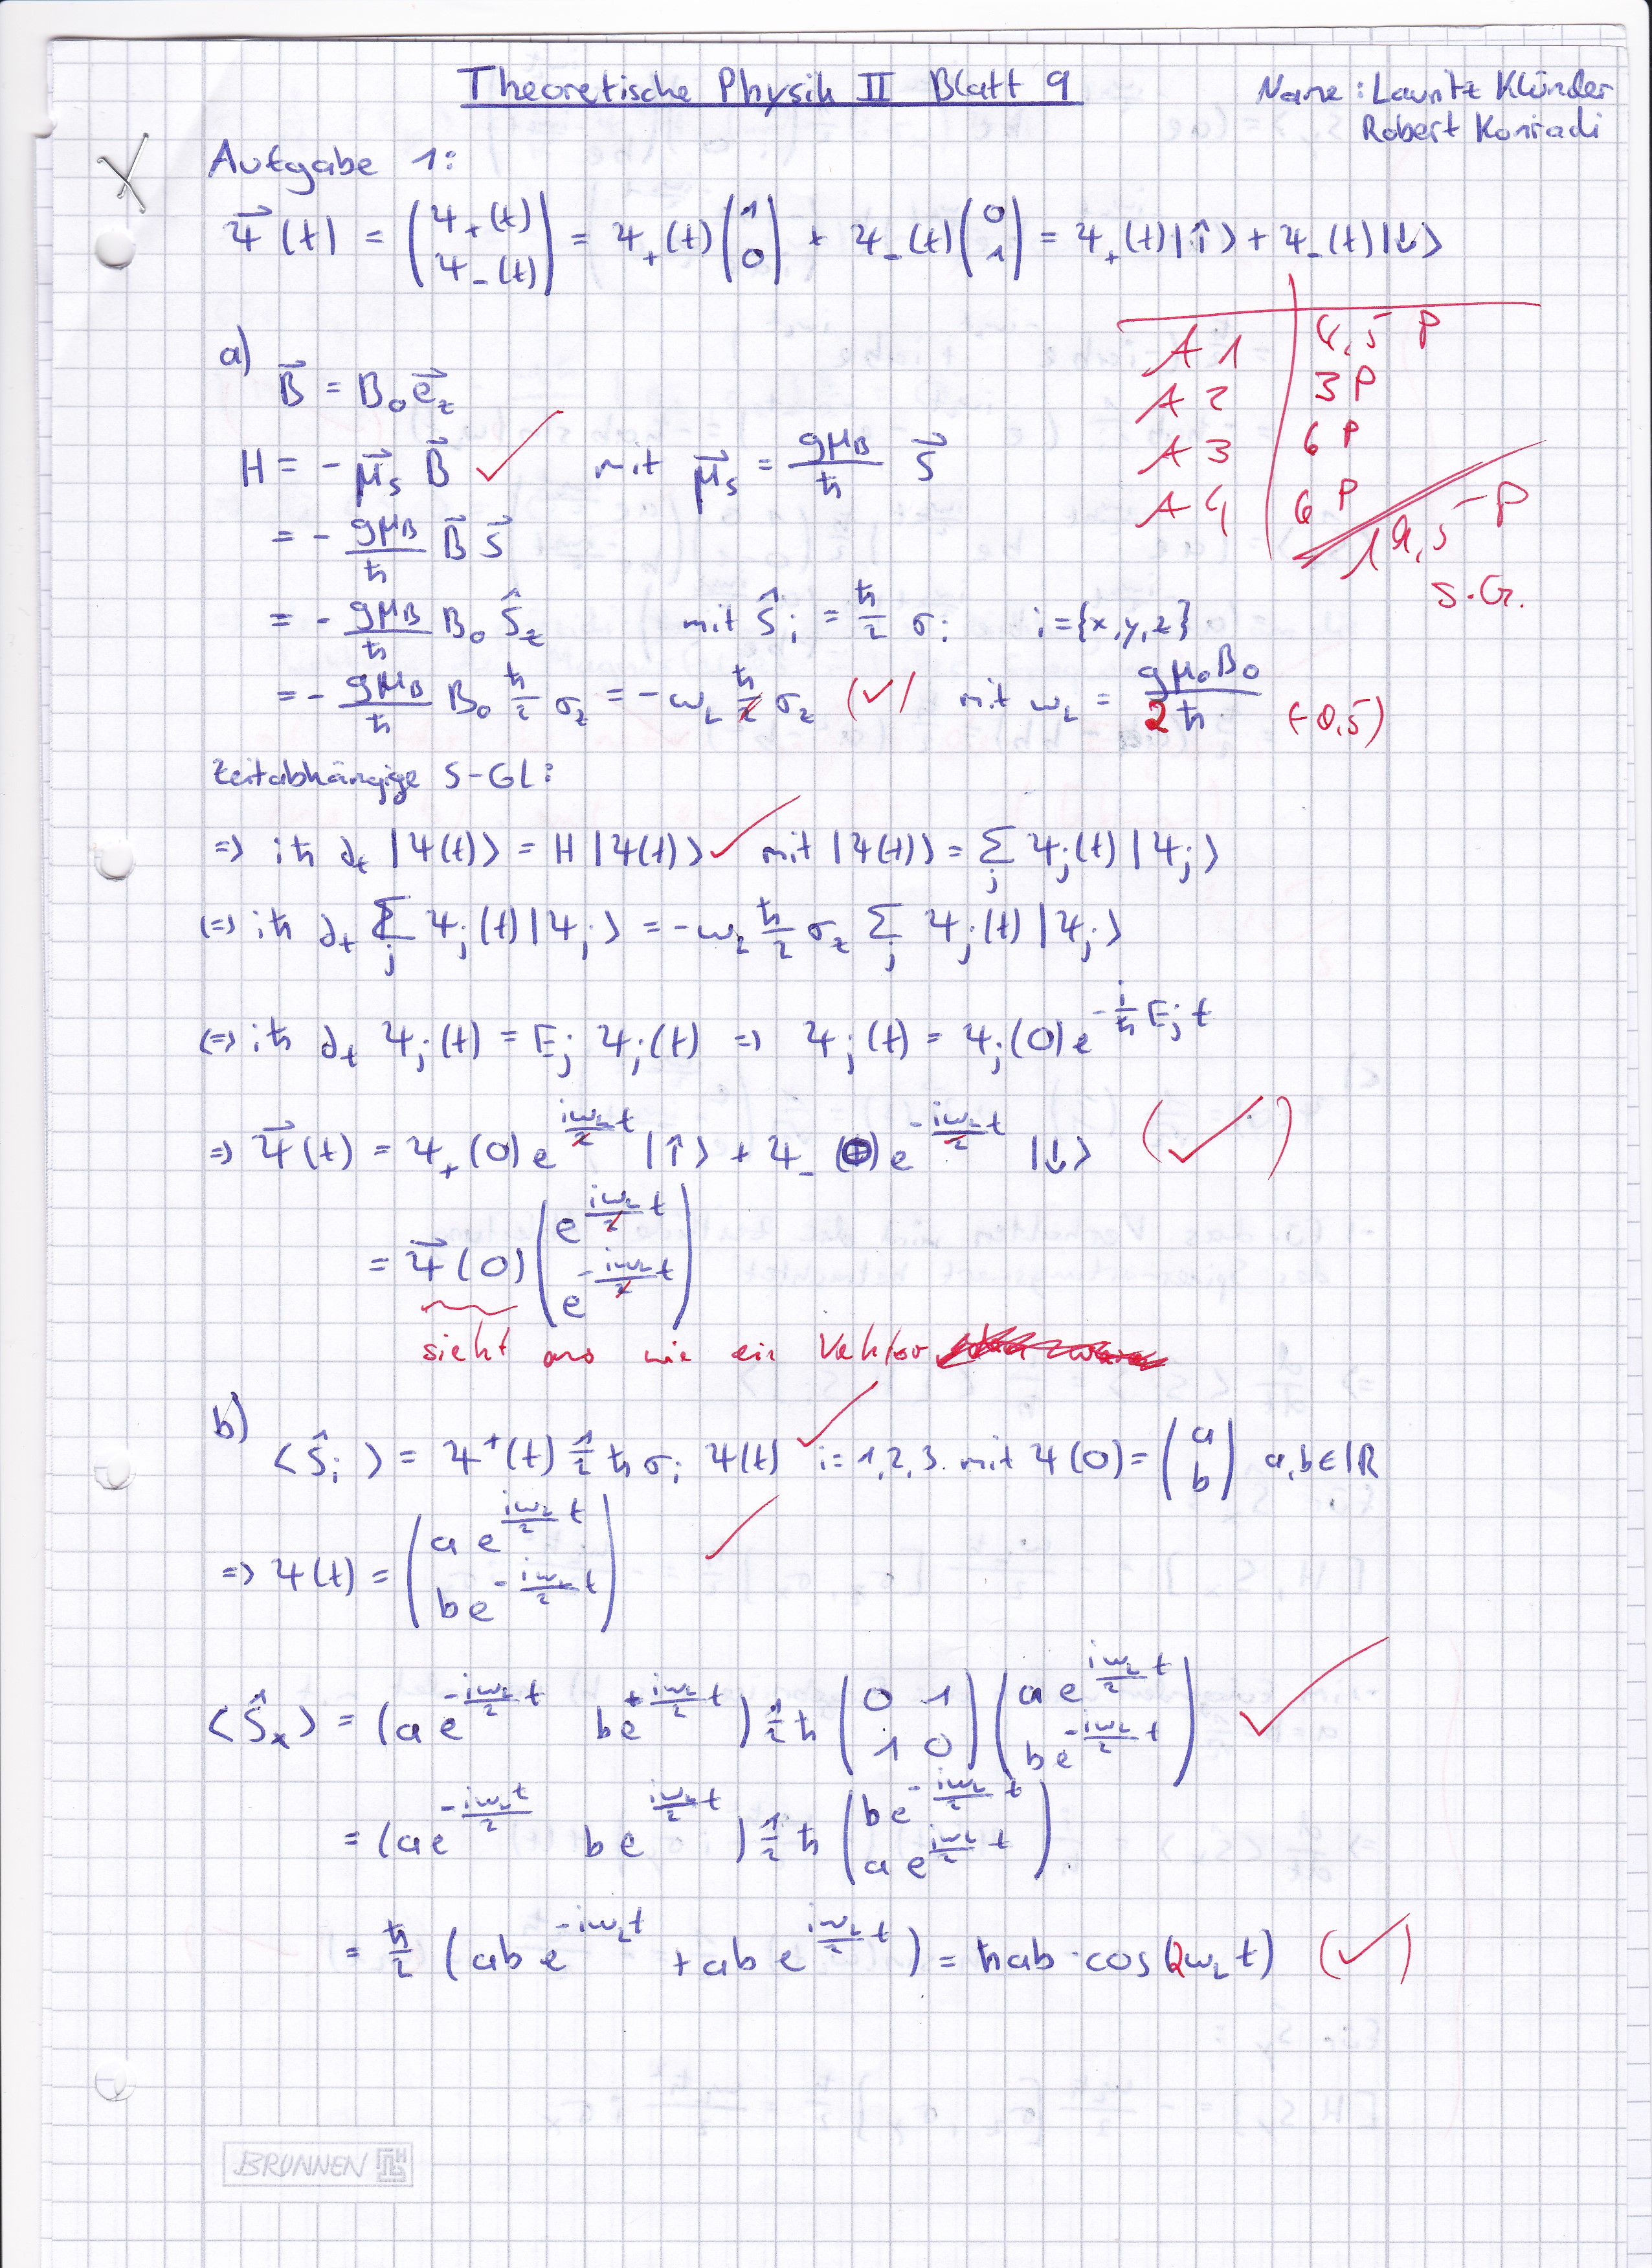 Theoretische Physik II Blatt 9
Name: Lauritz Klünder
Robert Konradi
Aufgabe 1:
$\vec{\Psi}(t) = \begin{pmatrix} \Psi_+(t) \\ \Psi_-(t) \end{pmatrix} = \Psi_+(t) \begin{pmatrix} 1 \\ 0 \end{pmatrix} + \Psi_-(t) \begin{pmatrix} 0 \\ 1 \end{pmatrix} = \Psi_+(t)|\uparrow\rangle + \Psi_-(t)|\downarrow\rangle$
A1 | 4,5 P
A2 | 3 P
A3 | 6 P
A4 | 6 P
19,5 P
S.G.
a)
$\vec{B} = B_0 \vec{e}_z$
$H = -\vec{\mu}_s \vec{B}$ ✓ mit $\vec{\mu}_s = \frac{g\mu_B}{\hbar} \vec{S}$
$= -\frac{g\mu_B}{\hbar} \vec{B} \vec{S}$
$= -\frac{g\mu_B}{\hbar} B_0 \hat{S}_z$ mit $\hat{S}_i = \frac{\hbar}{2} \sigma_i$ $i = \{x,y,z\}$
$= -\frac{g\mu_B}{\hbar} B_0 \frac{\hbar}{2} \sigma_z = -\omega_L \frac{\hbar}{2} \sigma_z$ (✓) mit $\omega_L = \frac{g\mu_0 B_0}{2\hbar}$ (-0,5)
Zeitabhängige S-Gl:
$\Rightarrow i\hbar \partial_t |\Psi(t)\rangle = H|\Psi(t)\rangle$ ✓ mit $|\Psi(t)\rangle = \sum_j \Psi_j(t)|\Psi_j\rangle$
$\Leftrightarrow i\hbar \partial_t \sum_j \Psi_j(t)|\Psi_j\rangle = -\omega_L \frac{\hbar}{2} \sigma_z \sum_j \Psi_j(t)|\Psi_j\rangle$
$\Leftrightarrow i\hbar \partial_t \Psi_j(t) = E_j \Psi_j(t) \Rightarrow \Psi_j(t) = \Psi_j(0) e^{-\frac{i}{\hbar} E_j t}$
$\Rightarrow \vec{\Psi}(t) = \Psi_+(0) e^{\frac{i\omega_L}{2}t} |\uparrow\rangle + \Psi_-(0) e^{-\frac{i\omega_L}{2}t} |\downarrow\rangle$ (✓)
$= \vec{\Psi}(0) \begin{pmatrix} e^{\frac{i\omega_L}{2}t} \\ e^{-\frac{i\omega_L}{2}t} \end{pmatrix}$
sieht aus wie ein Vektor
b)
$\langle \hat{S}_i \rangle = \Psi^+(t) \frac{1}{2} \hbar \sigma_i \Psi(t)$ ✓ i=1,2,3. mit $\Psi(0) = \begin{pmatrix} a \\ b \end{pmatrix}$ $a,b \in \mathbb{R}$
$\Rightarrow \Psi(t) = \begin{pmatrix} a e^{\frac{i\omega_L}{2}t} \\ b e^{-\frac{i\omega_L}{2}t} \end{pmatrix}$ ✓
$\langle \hat{S}_x \rangle = (a e^{-\frac{i\omega_L}{2}t} \quad b e^{+\frac{i\omega_L}{2}t}) \frac{1}{2} \hbar \begin{pmatrix} 0 & 1 \\ 1 & 0 \end{pmatrix} \begin{pmatrix} a e^{\frac{i\omega_L}{2}t} \\ b e^{-\frac{i\omega_L}{2}t} \end{pmatrix}$ ✓
$= (a e^{-\frac{i\omega_L t}{2}} \quad b e^{\frac{i\omega_L}{2}t}) \frac{1}{2} \hbar \begin{pmatrix} b e^{-\frac{i\omega_L}{2}t} \\ a e^{\frac{i\omega_L}{2}t} \end{pmatrix}$
$= \frac{\hbar}{2} (ab e^{-i\omega_L t} + ab e^{\frac{i\omega_L}{2}t}) = \hbar ab \cdot \cos(2\omega_L t)$ (✓)
BRUNNEN